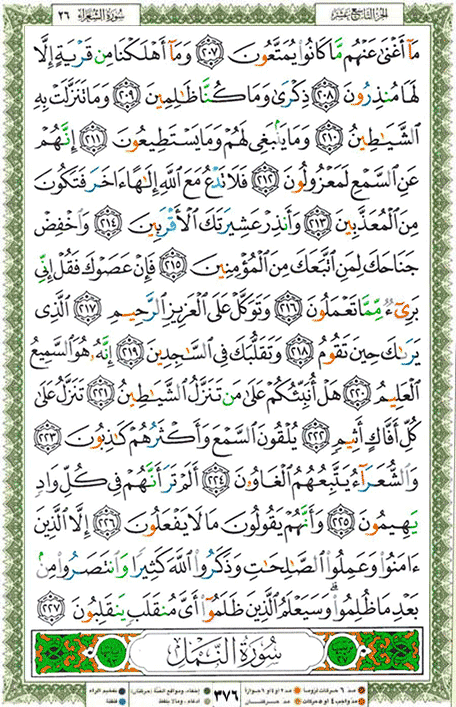 الجزء التاسع عشر
سورة الشعراء ٢٦
مَآ أَغْنَىٰ عَنْهُم مَّا كَانُوا۟ يُمَتَّعُونَ ٢٠٧ وَمَآ أَهْلَكْنَا مِن قَرْيَةٍ إِلَّا
لَهَا مُنذِرُونَ ٢٠٨ ذِكْرَىٰ وَمَا كُنَّا ظَٰلِمِينَ ٢٠٩ وَمَا تَنَزَّلَتْ بِهِ
ٱلشَّيَٰطِينُ ٢١٠ وَمَا يَنۢبَغِى لَهُمْ وَمَا يَسْتَطِيعُونَ ٢١١ إِنَّهُمْ
عَنِ ٱلسَّمْعِ لَمَعْزُولُونَ ٢١٢ فَلَا تَدْعُ مَعَ ٱللَّهِ إِلَٰهًا ءَاخَرَ فَتَكُونَ
مِنَ ٱلْمُعَذَّبِينَ ٢١٣ وَأَنذِرْ عَشِيرَتَكَ ٱلْأَقْرَبِينَ ٢١٤ وَٱخْفِضْ
جَنَاحَكَ لِمَنِ ٱتَّبَعَكَ مِنَ ٱلْمُؤْمِنِينَ ٢١٥ فَإِنْ عَصَوْكَ فَقُلْ إِنِّى
بَرِىٓءٌ مِّمَّا تَعْمَلُونَ ٢١٦ وَتَوَكَّلْ عَلَى ٱلْعَزِيزِ ٱلرَّحِيمِ ٢١٧ ٱلَّذِى
يَرَىٰكَ حِينَ تَقُومُ ٢١٨ وَتَقَلُّبَكَ فِى ٱلسَّٰجِدِينَ ٢١٩ إِنَّهُۥ هُوَ ٱلسَّمِيعُ
ٱلْعَلِيمُ ٢٢٠ هَلْ أُنَبِّئُكُمْ عَلَىٰ مَن تَنَزَّلُ ٱلشَّيَٰطِينُ ٢٢١ تَنَزَّلُ عَلَىٰ
كُلِّ أَفَّاكٍ أَثِيمٍ ٢٢٢ يُلْقُونَ ٱلسَّمْعَ وَأَكْثَرُهُمْ كَٰذِبُونَ ٢٢٣
وَٱلشُّعَرَآءُ يَتَّبِعُهُمُ ٱلْغَاوُۥنَ ٢٢٤ أَلَمْ تَرَ أَنَّهُمْ فِى كُلِّ وَادٍ
يَهِيمُونَ ٢٢٥ وَأَنَّهُمْ يَقُولُونَ مَا لَا يَفْعَلُونَ ٢٢٦ إِلَّا ٱلَّذِينَ
ءَامَنُوا۟ وَعَمِلُوا۟ ٱلصَّٰلِحَٰتِ وَذَكَرُوا۟ ٱللَّهَ كَثِيرًا وَٱنتَصَرُوا۟ مِنۢ
بَعْدِ مَا ظُلِمُوا۟ ۗ وَسَيَعْلَمُ ٱلَّذِينَ ظَلَمُوٓا۟ أَىَّ مُنقَلَبٍ يَنقَلِبُونَ ٢٢٧
سُورَةُ النَّمْل
٣٧٦